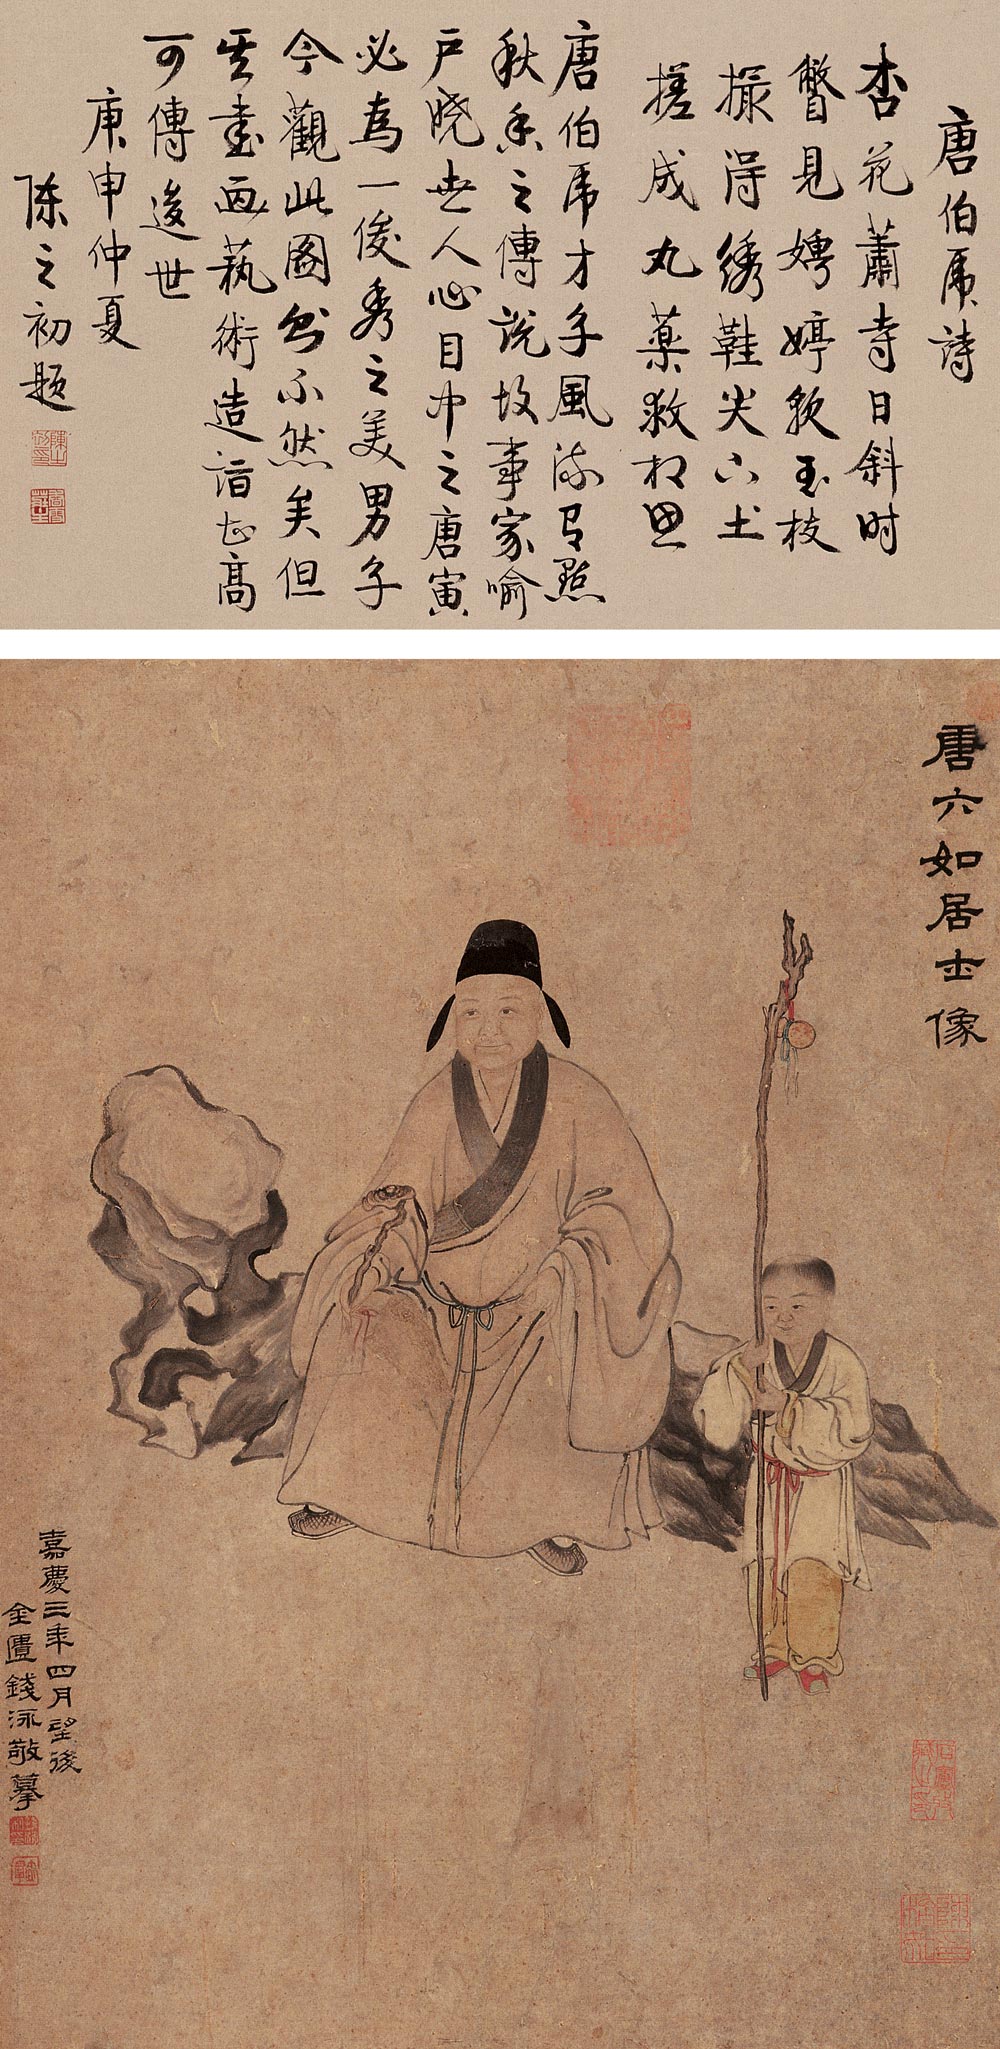 唐伯虎詩
杏花蕭寺日斜时
瞥見娉婷軟玉枝
撮得绣鞋尖下土
搓成丸藥救相思
唐伯虎才子風流有點
秋香之傳説故事家喻
户晓世人心目中之唐寅
必為一俊秀之美男子
今觀此圖則不然矣但
其書画藝術造詣之高
可傳後世
庚申仲夏
陈之初题
唐六如居士像
嘉慶三年四月望後
金匱錢泳敬摹